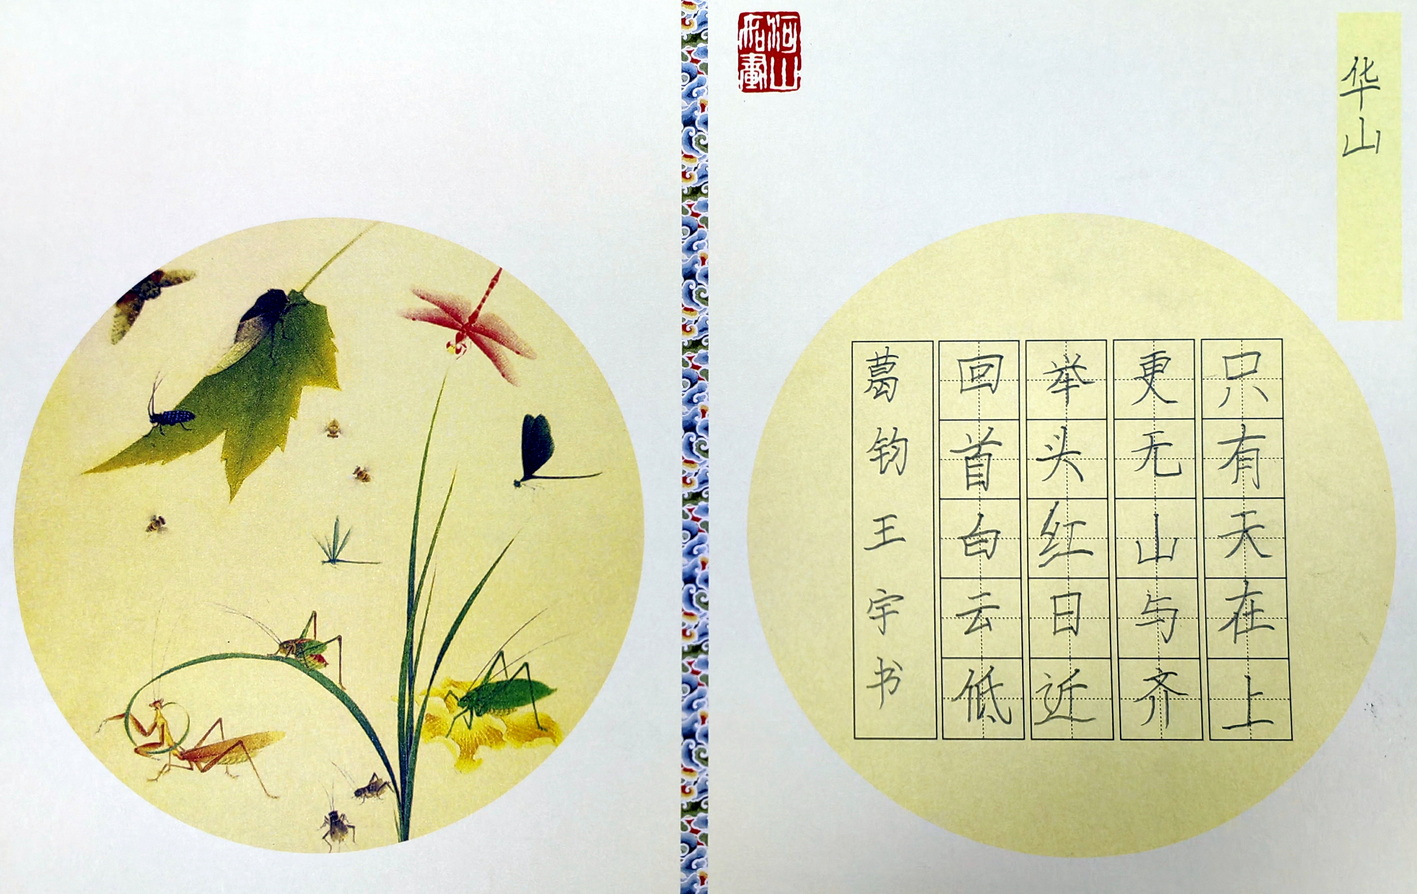 华山
只有天在上
更无山与齐
举头红日近
回首白云低
葛钧王宇书
河山如画